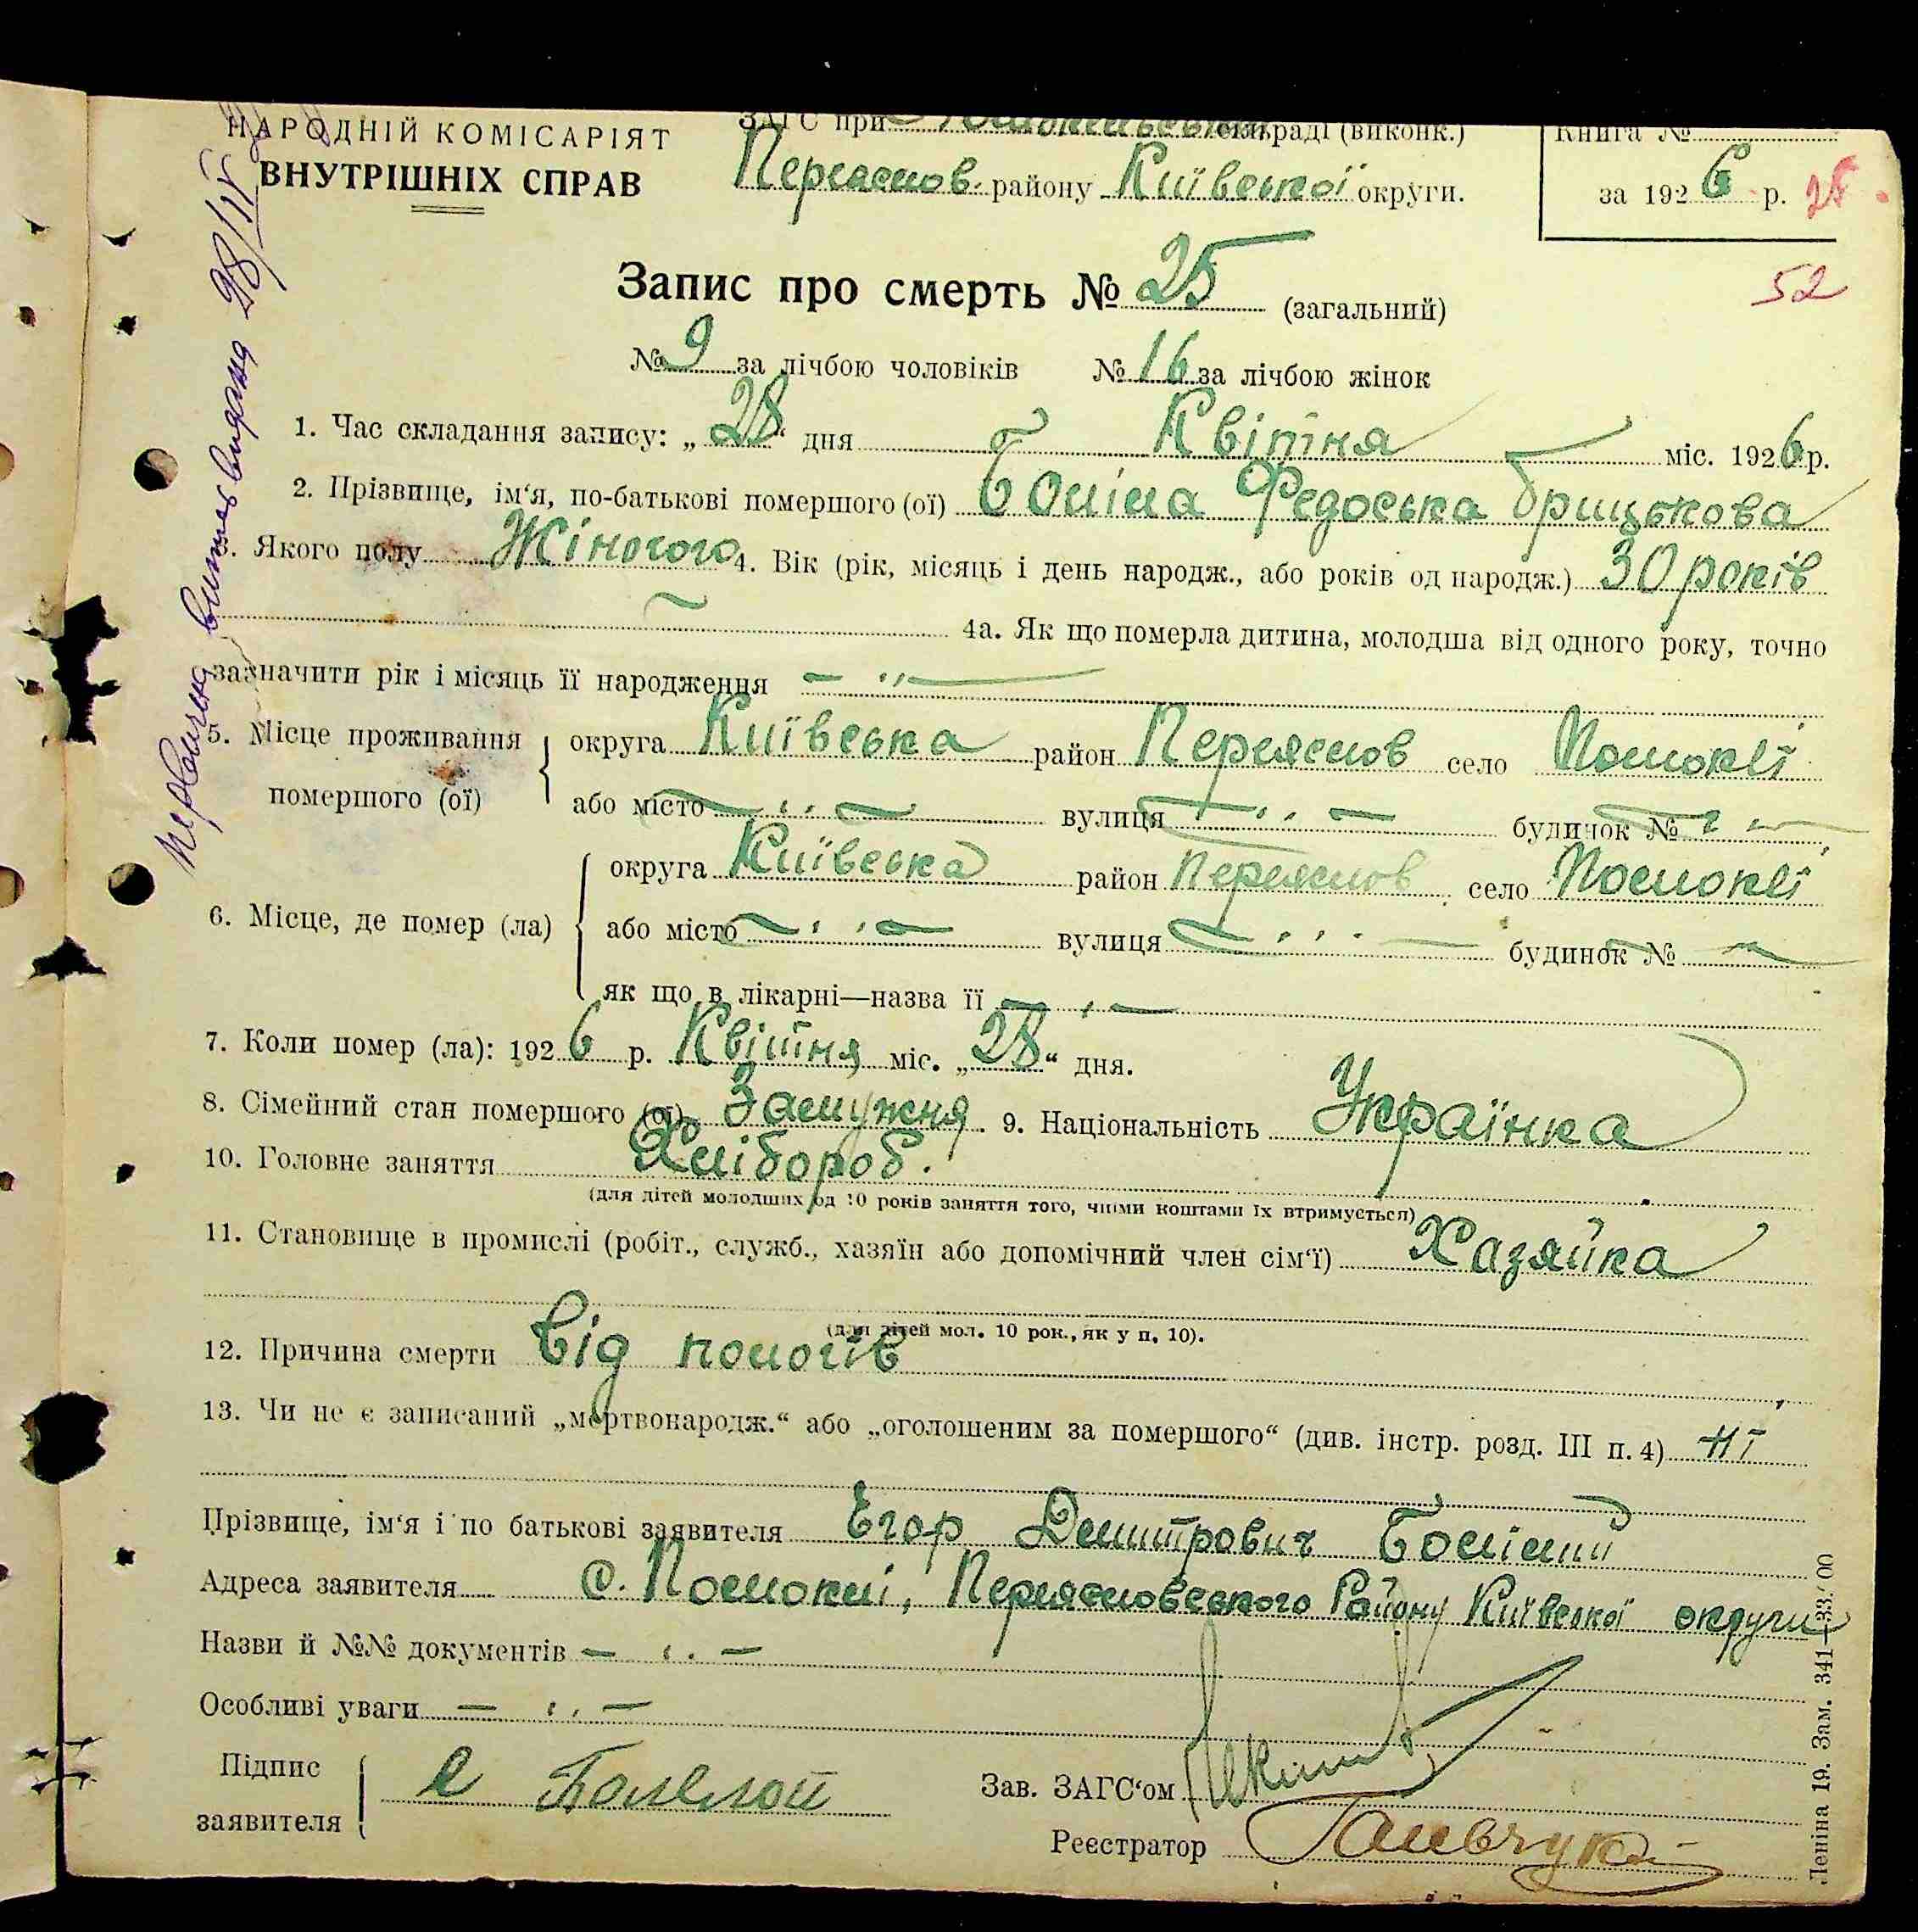 НАРОДНІЙ КОМІСАРІЯТ
ВНУТРІШНІХ СПРАВ
ЗАГС при райраді (виконк.)
Переяслов. району Київської округи.
Книга №
за 1926 р. 25.
52
Запис про смерть № 25 (загальний)
№ 9 за лічбою чоловіків № 16 за лічбою жінок
1. Час складання запису: „28“ дня Квітня міс. 1926 р.
2. Прізвище, ім‘я, по-батькові помершого (ої) Федоська Грицькова
3. Якого полу Жіночого 4. Вік (рік, місяць і день народж., або років од народж.) 30 років
4а. Як що померла дитина, молодша від одного року, точно
зазначити рік і місяць її народження — „ —
5. Місце проживання помершого (ої) округа Київська район Переяслов село Помоклі
або місто — „ — вулиця — „ — будинок № — „ —
6. Місце, де помер (ла) округа Київська район Переяслов село Помоклі
або місто — „ — вулиця — „ — будинок № —
як що в лікарні—назва її — „ —
7. Коли помер (ла): 1926 р. Квітня міс. „28“ дня.
8. Сімейний стан помершого (ої) Замужня. 9. Національність Українка
10. Головне заняття Хлібороб.
(для дітей молодших од 10 років заняття того, чиїми коштами їх втримується)
11. Становище в промислі (робіт., служб., хазяїн або допомічний член сім‘ї) Хазяйка
(для дітей мол. 10 рок., як у п. 10).
12. Причина смерти Від пологів
13. Чи не є записаний „мертвонародж.“ або „оголошеним за помершого“ (див. інстр. розд. III п. 4) Ні
Прізвище, ім‘я і по батькові заявителя Егор Дмитрович
Адреса заявителя с. Помоклі, Переясловського Району Київської округи
Назви й №№ документів — „ —
Особливі уваги — „ —
Підпис заявителя Е
Зав. ЗАГС‘ом
Реєстратор
Первична виписка видана 28/IV
Леніна 19. Зам. 341—33.00